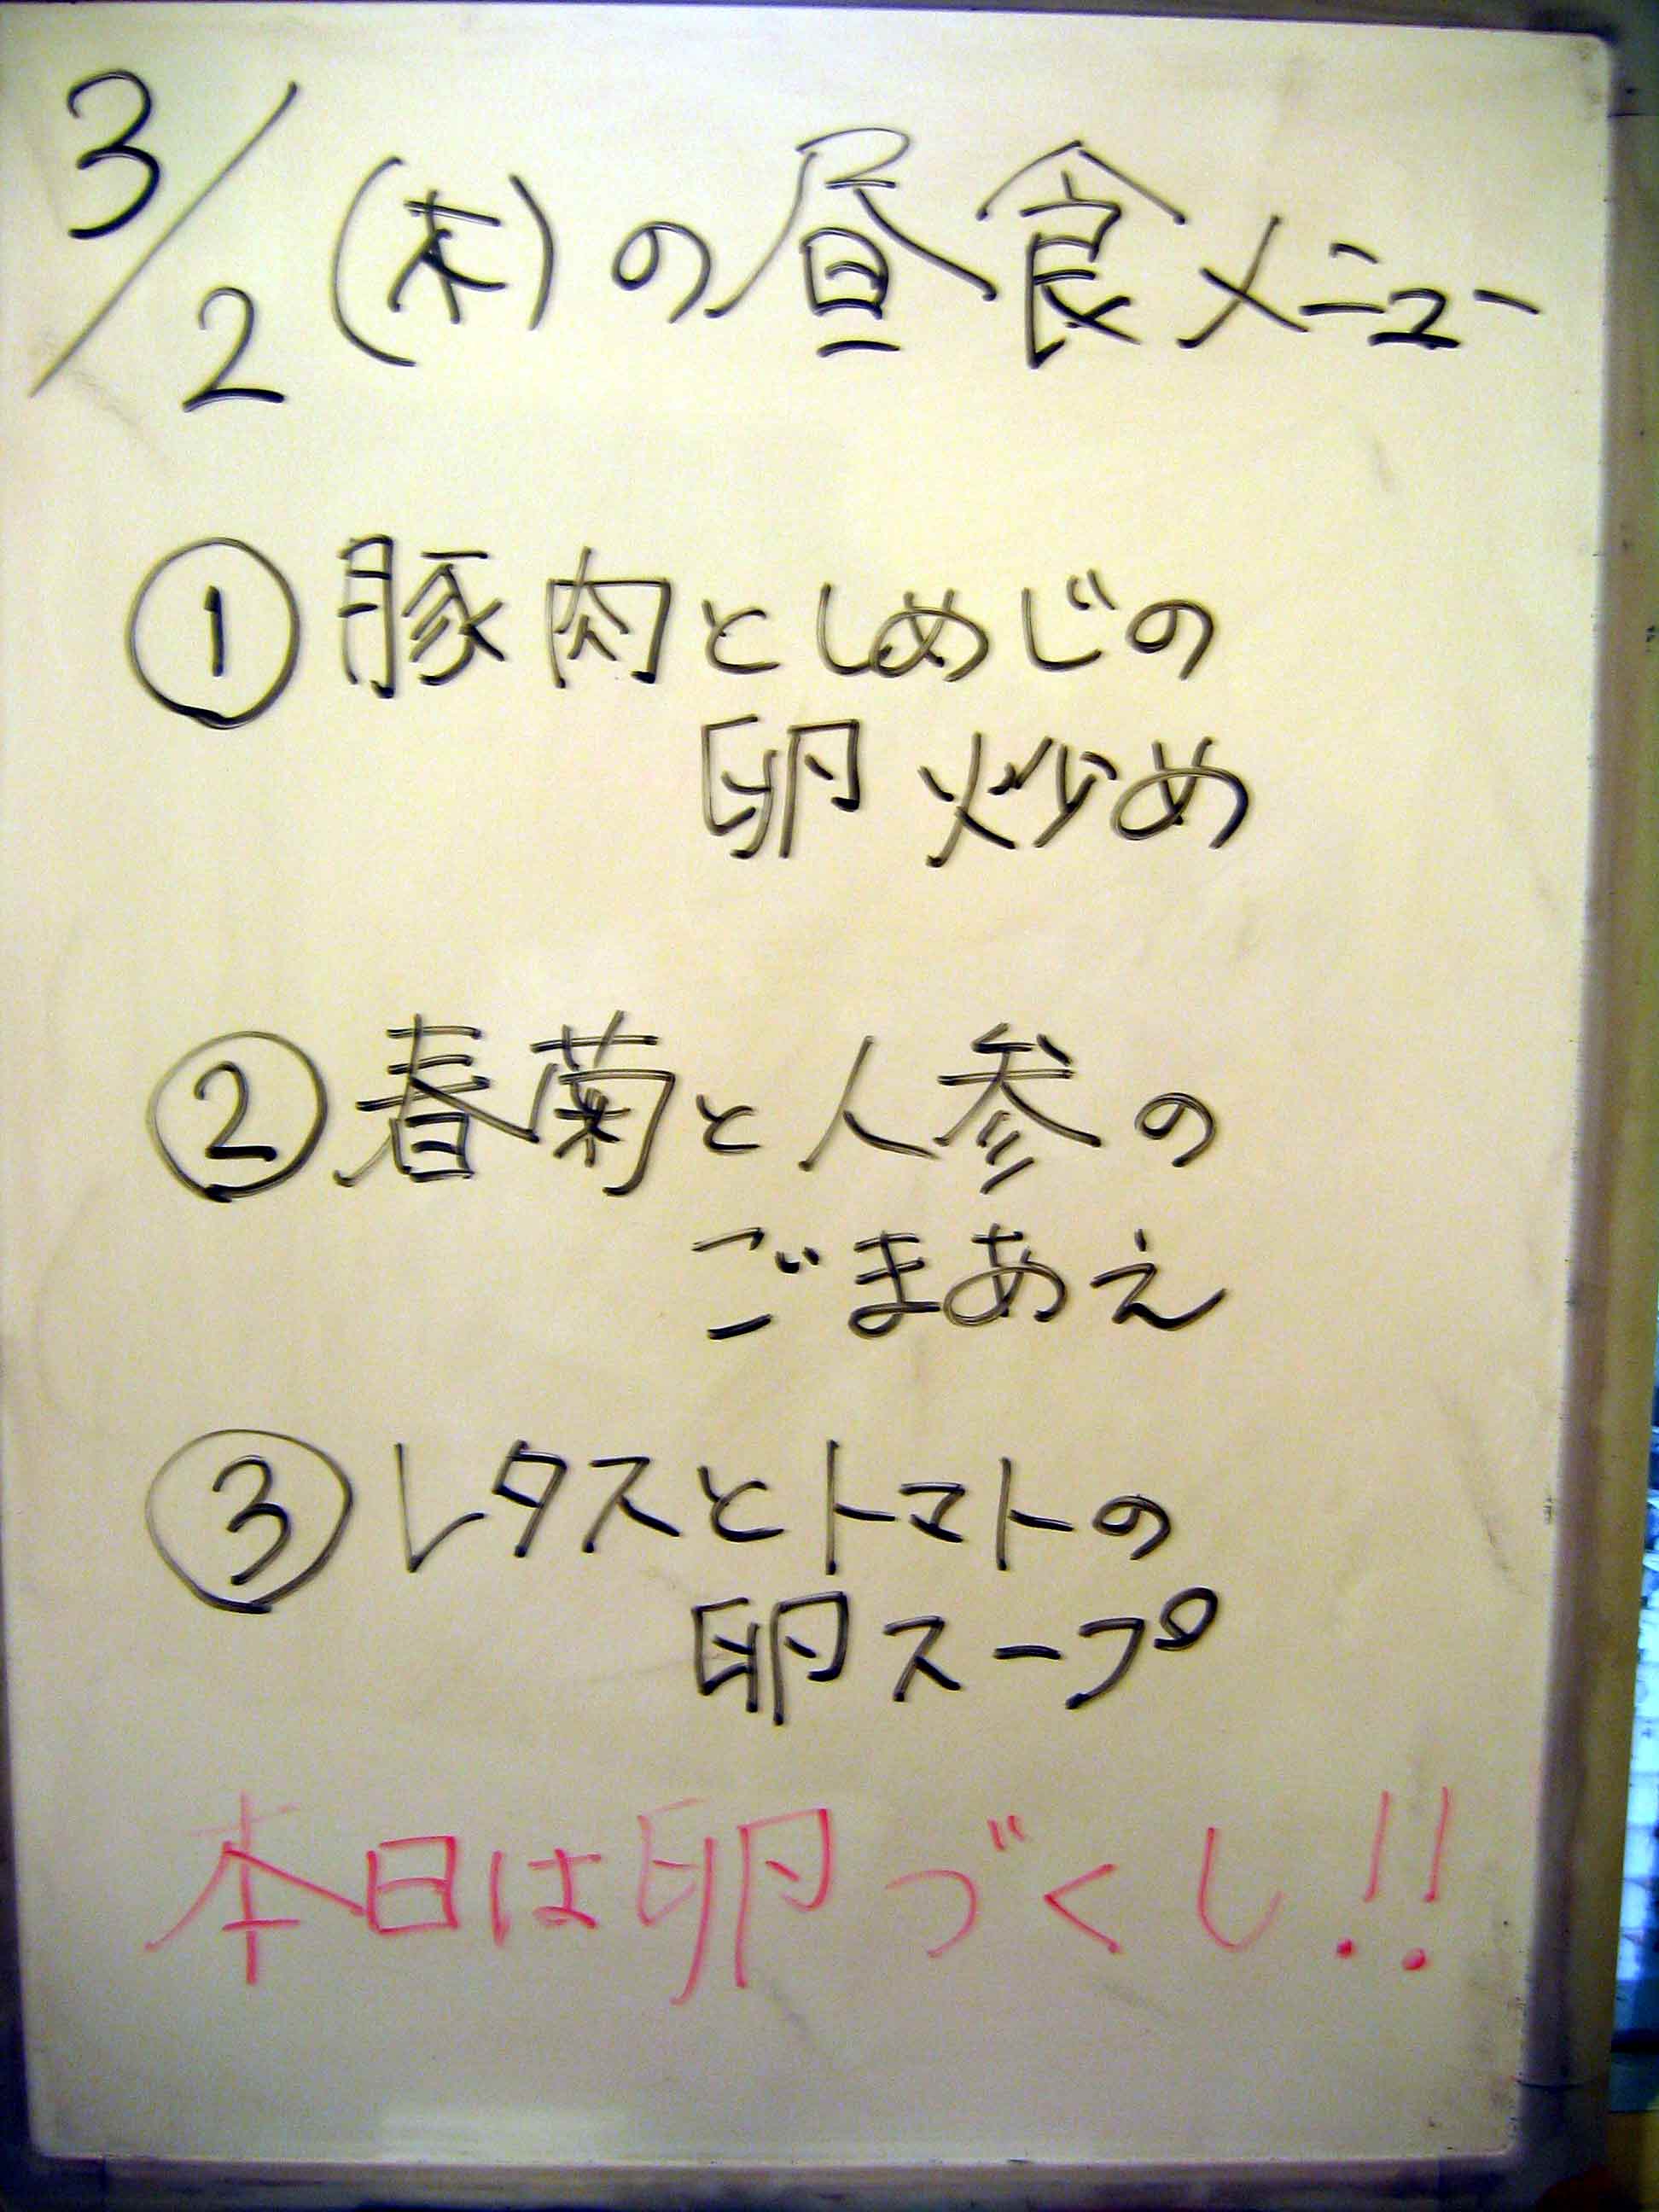 3/2(木)の昼食メニュー
①豚肉としめじの
卵炒め
②春菊と人参の
ごまあえ
③レタスとトマトの
卵スープ
本日は卵づくし!!